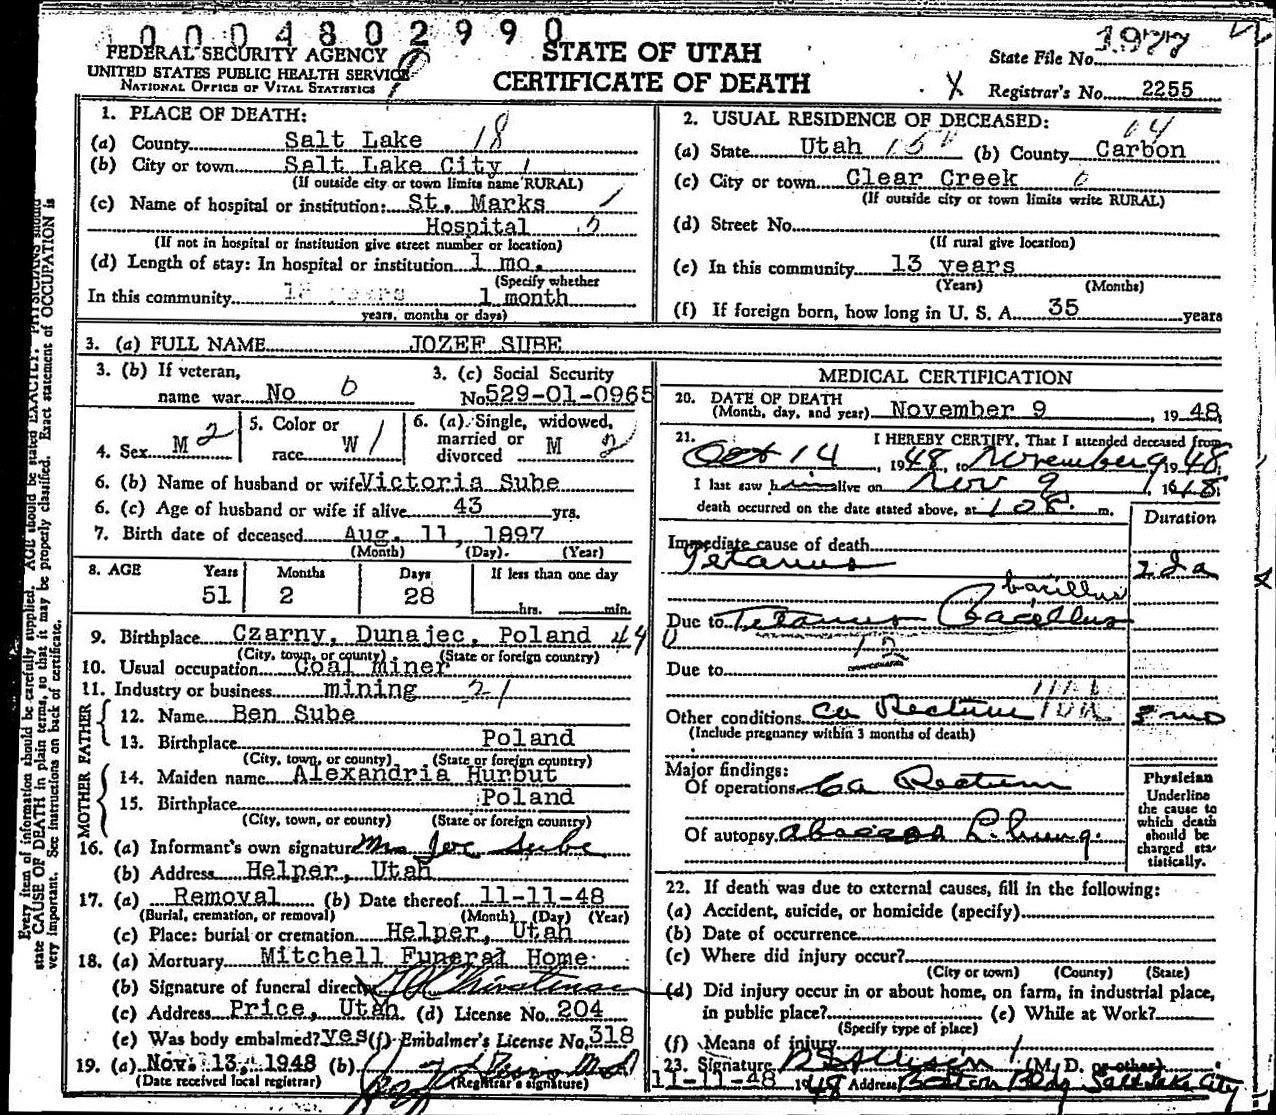 0004802990
FEDERAL SECURITY AGENCY
UNITED STATES PUBLIC HEALTH SERVICE
NATIONAL OFFICE OF VITAL STATISTICS
STATE OF UTAH
CERTIFICATE OF DEATH
State File No. 1977
X Registrar's No. 2255
1. PLACE OF DEATH:
(a) County Salt Lake 18
(b) City or town Salt Lake City 1
(If outside city or town limits name RURAL)
(c) Name of hospital or institution: St. Marks
Hospital
(If not in hospital or institution give street number or location)
(d) Length of stay: In hospital or institution 1 mo.
(Specify whether
In this community 1 month
years, months or days)
2. USUAL RESIDENCE OF DECEASED:
(a) State Utah (b) County Carbon
(c) City or town Clear Creek
(If outside city or town limits write RURAL)
(d) Street No.
(If rural give location)
(e) In this community 13 years
(Years) (Months)
(f) If foreign born, how long in U. S. A. 35 years
3. (a) FULL NAME JOZEF SUBE
3. (b) If veteran,
name war No
3. (c) Social Security
No. 529-01-0965
4. Sex M 2
5. Color or
race W 1
6. (a) Single, widowed,
married or
divorced M 2
6. (b) Name of husband or wife Victoria Sube
6. (c) Age of husband or wife if alive 43 yrs.
7. Birth date of deceased Aug. 11, 1897
(Month) (Day) (Year)
8. AGE Years Months Days If less than one day
51 2 28 hrs. min.
9. Birthplace Czarny, Dunajec, Poland
(City, town, or county) (State or foreign country)
10. Usual occupation Coal Miner
11. Industry or business mining 21
FATHER
12. Name Ben Sube
13. Birthplace Poland
(City, town, or county) (State or foreign country)
MOTHER
14. Maiden name Alexandria Hurbut
15. Birthplace Poland
(City, town, or county) (State or foreign country)
16. (a) Informant's own signature Mrs Joe Sube
(b) Address Helper, Utah
17. (a) Removal (b) Date thereof 11-11-48
(Burial, cremation, or removal) (Month) (Day) (Year)
(c) Place: burial or cremation Helper, Utah
18. (a) Mortuary Mitchell Funeral Home
(b) Signature of funeral director
(c) Address Price, Utah (d) License No. 204
(e) Was body embalmed? yes (f) Embalmer's License No. 318
19. (a) Nov. 13, 1948 (b)
(Date received local registrar) (Registrar's signature)
MEDICAL CERTIFICATION
20. DATE OF DEATH
(Month, day, and year) November 9 , 19 48
21. I HEREBY CERTIFY, That I attended deceased from
Oct 14 , 1948, to November 9, 1948
I last saw him alive on Nov 9 , 1948
death occurred on the date stated above, at 108 m.
Duration
Immediate cause of death
Tetanus 2 da
bacillus
Due to Tetanus Bacillus
Due to
Other conditions ca Rectum 3 mo
(Include pregnancy within 3 months of death)
Major findings:
Of operations Ca Rectum
Of autopsy abscess L. lung.
Physician
Underline
the cause to
which death
should be
charged sta-
tistically.
22. If death was due to external causes, fill in the following:
(a) Accident, suicide, or homicide (specify)
(b) Date of occurrence
(c) Where did injury occur?
(City or town) (County) (State)
(d) Did injury occur in or about home, on farm, in industrial place,
in public place? (e) While at Work?
(Specify type of place)
(f) Means of injury
23. Signature (M. D. or other)
11-11-48 1948 Address Boston Bldg Salt Lake City
Every item of information should be carefully supplied. AGE should be stated EXACTLY. PHYSICIANS should
state CAUSE OF DEATH in plain terms, so that it may be properly classified. Exact statement of OCCUPATION is
very important. See instructions on back of certificate.